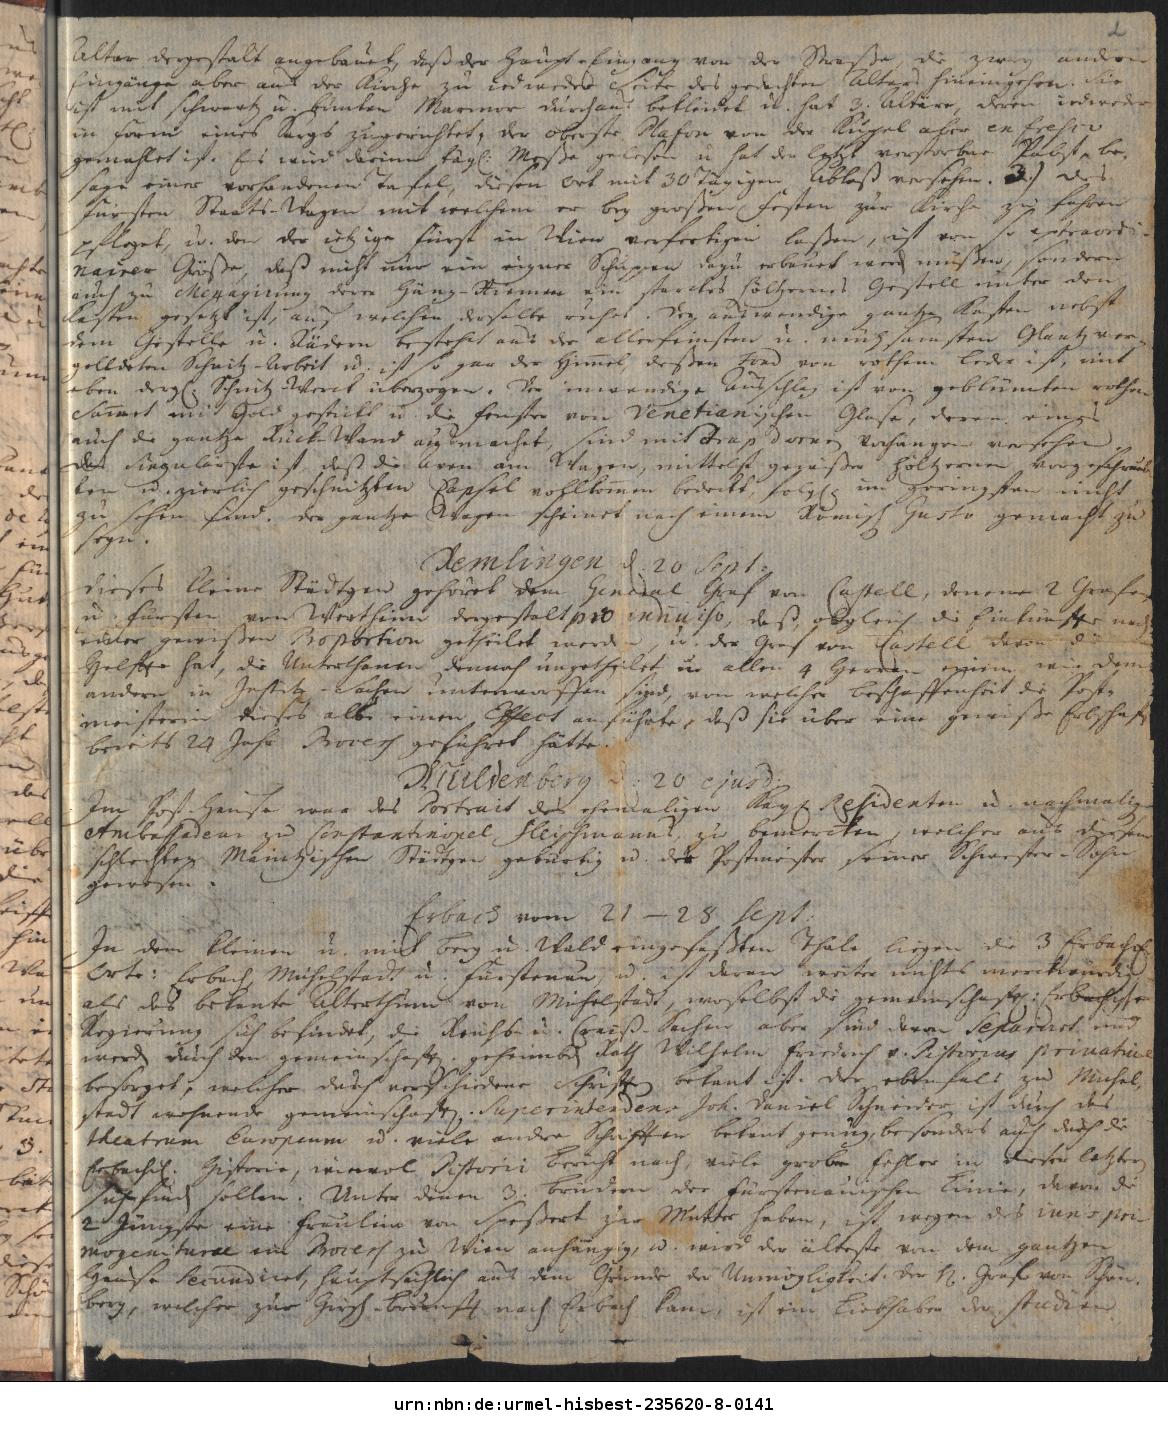 2
Altar dergestalt angebauet, daß der Haupt-Eingang von der Straße, die zwey andern
Eingänge aber aus der Kirche zu iedweder Seite des gedachten Altars hineingehen. Sie
ist mit schwartz u. bunten Marmor durchaus bekleidet u. hat 3. Altäre, deren iedweder
in Form eines Sargs zugerichtet, der oberste Plafon von der Kupel aber en fresco
gemahlet ist. Es wird darinn tägl: Meße gelesen u hat der letzt verstorbne Pabst, be-
sage einer vorhandenen Tafel, diesen Ort mit 30 Tägigen Ablaß versehen. 3.) Des
Fürsten Staats-Wagen mit welchem er bey großen Festen zur Kirche zu fahren
pfleget, u. den der ietzige Fürst in Wien verfertigen laßen, ist von so extraordi-
nairer Größe, daß nicht nur ein eigner Schuppen dazu erbauet werd müßen, sondern
auch zu Menagirung derer Häng-Riemen ein starckes höltzernes Gestell unter den
Kasten gesetzt ist, auf welchen derselbe ruhet. Der auswendige gantze Kasten nebst
dem Gestelle u. Rädern bestehet aus der allerfeinsten u. mühsamsten Glantz ver-
goldeten Schnitz-Arbeit u. ist so gar der Himel, deßen Fond von rothem Leder ist, mit
eben dergl. Schnitz-Werck überzogen. Der inwendige Ausschlag ist von geblümten rothen
Samet mit Gold gestickt u. die Fenster von Venetianischen Glase, deren eines
auch die gantze Rück-Wand ausmachet, sind mit Drap d'ornen Vorhängen versehen
Das Singulärste ist, daß die Axen am Wagen, mittelst gewißer höltzernen vorgeschraub-
ten u. zierlich geschnitzten Capsel vollkomen bedeckt, folgl. im geringsten nicht
zu sehen sind. Der gantze Wagen scheinet nach einem Römisch Gusto gemacht zu
seyn.
Remlingen d. 20 Sept:
Dieses kleine Städtgen gehöret dem General Graf von Castell, denene 2 Grafen
u. Fürsten von Wertheim dergestalt pro indiviso, daß, obgleich die Einkünffte nach
einer gewißen Proportion getheilet werden, u. der Graf von Castell davon die
Helffte hat, die Unterthanen dennoch ungetheilet u allen 4 Herren einem wie dem
andern in Justitz-Sachen unterworffen sind, von welcher Beschaffenheit die Post-
meisterin dieses alß einen Effect anführte, daß sie über eine gewiße Erbschafft
bereits 24 Jahr Proceß geführet hätte.
Miltenberg d. 20 ejusd:
Im Post-Hause war das Portrait des ehemaligen Kays. Residenten u. nachmalig
Ambassadeur zu Constantinopel, Fleischmanns, zu bemercken, welcher aus diesem
schlechten Maintzischen Städtgen gebürtig u. der Postmeister seiner Schwester-Sohn
gewesen.
Erbach vom 21 – 28 Sept.
In dem kleinen u. mit Berg u. Wald eingefaßten Thale liegen die 3 Erbach.
Orte: Erbach, Michelstadt u. Fürstenau u. ist deren weiter nichts merckwürdig
als das bekante Alterthum von Michelstadt, woselbst die gemeinschaftl: Erbachische
Regierung sich befindet, die Reichs- u. Crayß-Sachen aber sind davon Separiret und
werd durch den gemeinschaftl. geheimbd Rath Wilhelm Friedrich v. Pistorius privative
besorget, welcher durch verschiedene Schriften bekant ist. Der ebenfals zu Michel-
stadt wohnende gemeinschaftl. Superintendens Joh. Daniel Schneider ist durch das
theatrum Europeum u. viele andre Schrifften bekant genug, besonders auch durch die
Erbachis. Historie, wiewol Pistorii Bericht nach, viele grobe Fehler in dieser letztern
sich find sollen. Unter denen 3. Brüdern der Fürstenauischen Linie, davon die
2 Jüngste eine Fräulein von Speßert zur Mutter haben, ist wegen des iuris pri-
mogeniturae ein Proceß zu Wien anhängig, u. wird der älteste von dem gantzen
Hause Secundiret, hauptsächlich aus dem Grunde der Unmöglichkeit. Der H. Graf von Schön-
berg, welcher zur Hirsch-Brunfft nach Erbach kam, ist ein Liebhaber der Studien
urn:nbn:de:urmel-hisbest-235620-8-0141